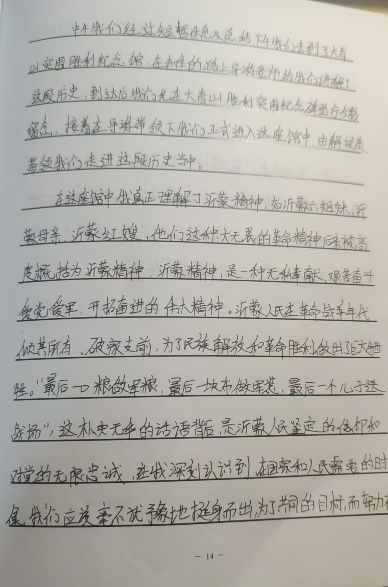 中午我们经过短暂休息及总结下午我们去到了大青
山突围胜利纪念馆,在去往的路上导游老师给我们讲解了
这段历史,到达后我们先在大青山胜利突围纪念碑进行合影
留念,接着在导游带领下我们正式进入这座馆中,由解说员
带领我们走进这段历史当中。
在这座馆中我真正理解了沂蒙精神,如沂蒙六姐妹,沂
蒙母亲,沂蒙红嫂,他们这种大无畏的革命精神后来被高
度概括为沂蒙精神。沂蒙精神,是一种无私奉献、艰苦奋斗
爱党爱军,开拓奋进的伟大精神。沂蒙人民在革命战争年代,
倾其所有、破家支前,为了民族解放和革命胜利做出了巨大牺
牲。"最后一口粮做军粮,最后一块布做军装,最后一个儿子送
战场",这朴实无华的话语背后,是沂蒙人民坚定的信仰和
对党的无限忠诚,在我深刻认识到,在国家和人民需要的时
候,我们应该毫不犹豫地挺身而出,为了共同的目标,而努力
- 14 -